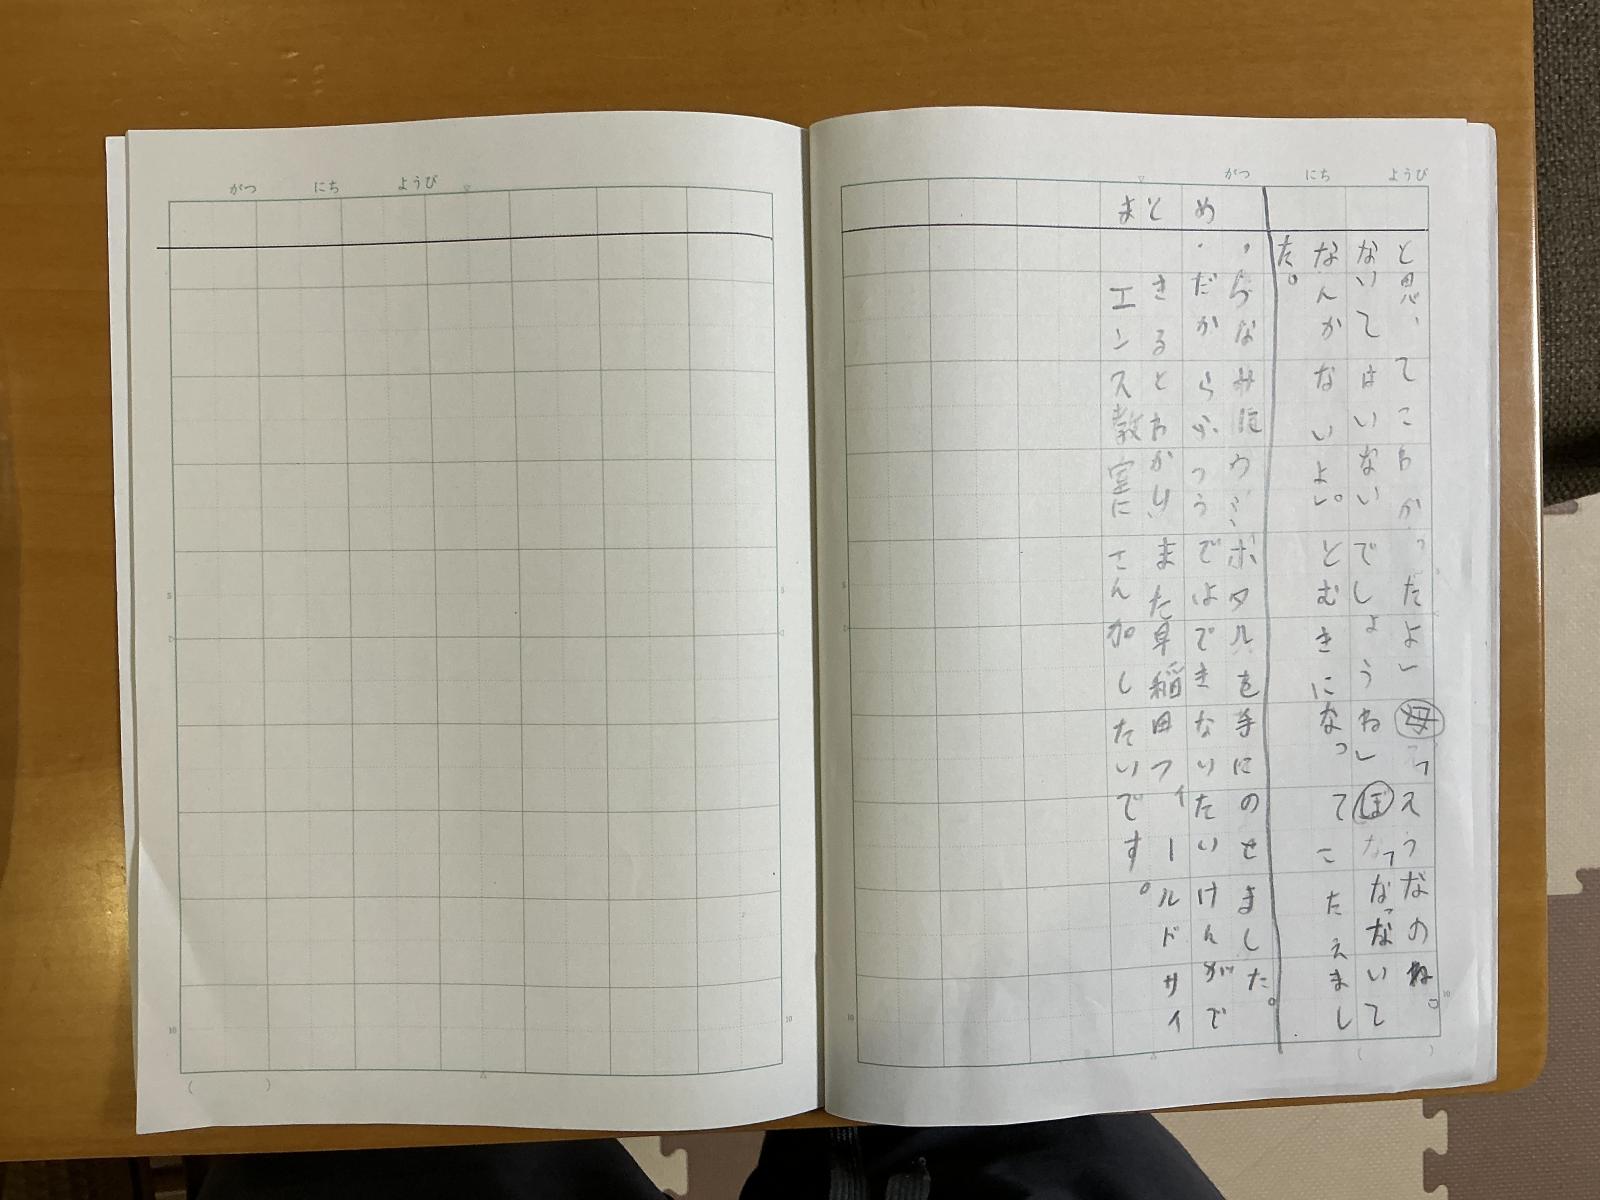 がつ にち ようび
と思ってこわかったよ」母「そうなのね。
ないてはいないでしょうね」ぼ「なっなないて
なんかないよ。」とむきになってこたえまし
た。
まとめ
・らなみにウミホタルを手にのせました。
・だからふつうではできないたいけんがで
きるとわかり、また早稲田フィールドサイ
エンス教室にさん加したいです。
5
10
がつ にち ようび
5
10